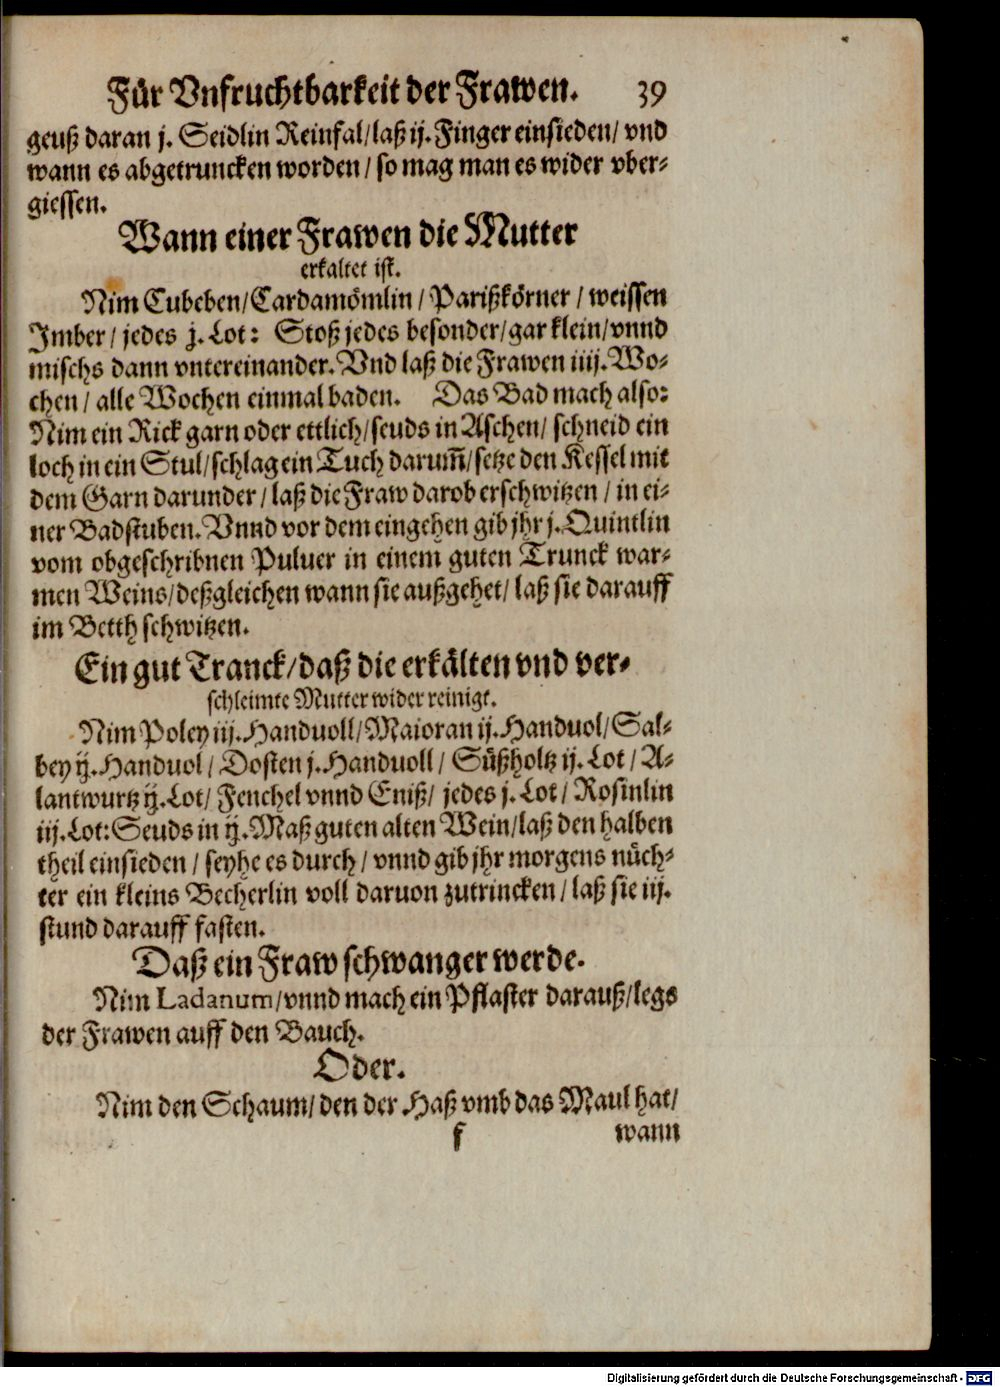 Für Vnfruchtbarkeit der Frawen. 39
geuß daran j. Seidlin Reinfal/laß ij. Finger einsieden/ vnd
wann es abgetruncken worden / so mag man es wider vber-
giessen.
Wann einer Frawen die Mutter
erkaltet ist.
Nim Cubeben/Cardamömlin / Parißkörner / weissen
Imber / jedes j. Lot: Stoß jedes besonder/gar klein/vnnd
mischs dann vntereinander. Vnd laß die Frawen iiij. Wo-
chen / alle Wochen einmal baden. Das Bad mach also:
Nim ein Rick garn oder ettlich/seuds in Aschen/ schneid ein
loch in ein Stul/schlag ein Tuch darum̃/setze den Kessel mit
dem Garn darunder / laß die Fraw darob erschwitzen / in ei-
ner Badstuben. Vnnd vor dem eingehen gib jhr j. Quintlin
vom obgeschribnen Puluer in einem guten Trunck war-
men Weins/deßgleichen wann sie außgehet/ laß sie darauff
im Betth schwitzen.
Ein gut Tranck/daß die erkälten vnd ver-
schleimte Mutter wider reinigt.
Nim Poley iij. Handvoll/Maioran ij. Handuol/Sal-
bey ij. Handuol / Dosten j. Handuoll / Süßholtz ij. Lot / A-
lantwurtz ij. Lot/ Fenchel vnnd Eniß/ jedes j. Lot / Rosinlin
iij. Lot: Seuds in ij. Maß guten alten Wein/laß den halben
theil einsieden / seyhe es durch / vnnd gib jhr morgens nüch-
ter ein kleins Becherlin voll daruon zutrincken / laß sie iij.
stund darauff fasten.
Daß ein Fraw schwanger werde.
Nim Ladanum/vnnd mach ein Pflaster darauß/legs
der Frawen auff den Bauch.
Oder.
Nim den Schaum/ den der Haß vmb das Maul hat/
f wann
Digitalisierung gefördert durch die Deutsche Forschungsgemeinschaft - DFG